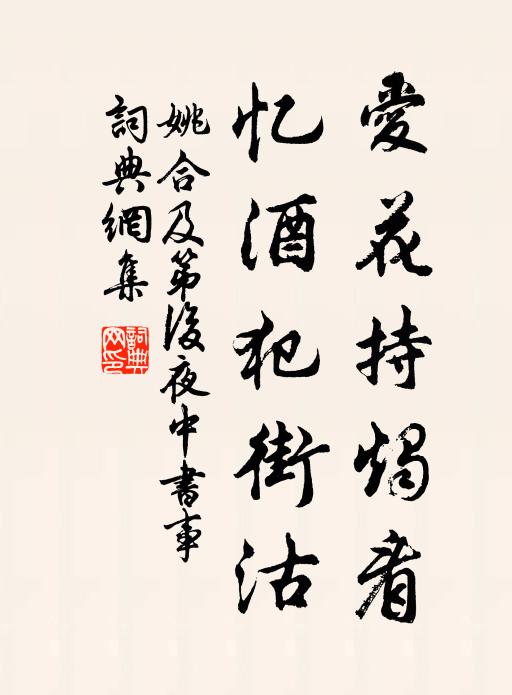 愛花持燭看
忆酒犯街沽
姚合及第後夜中書事
詞典網集
詞典网印